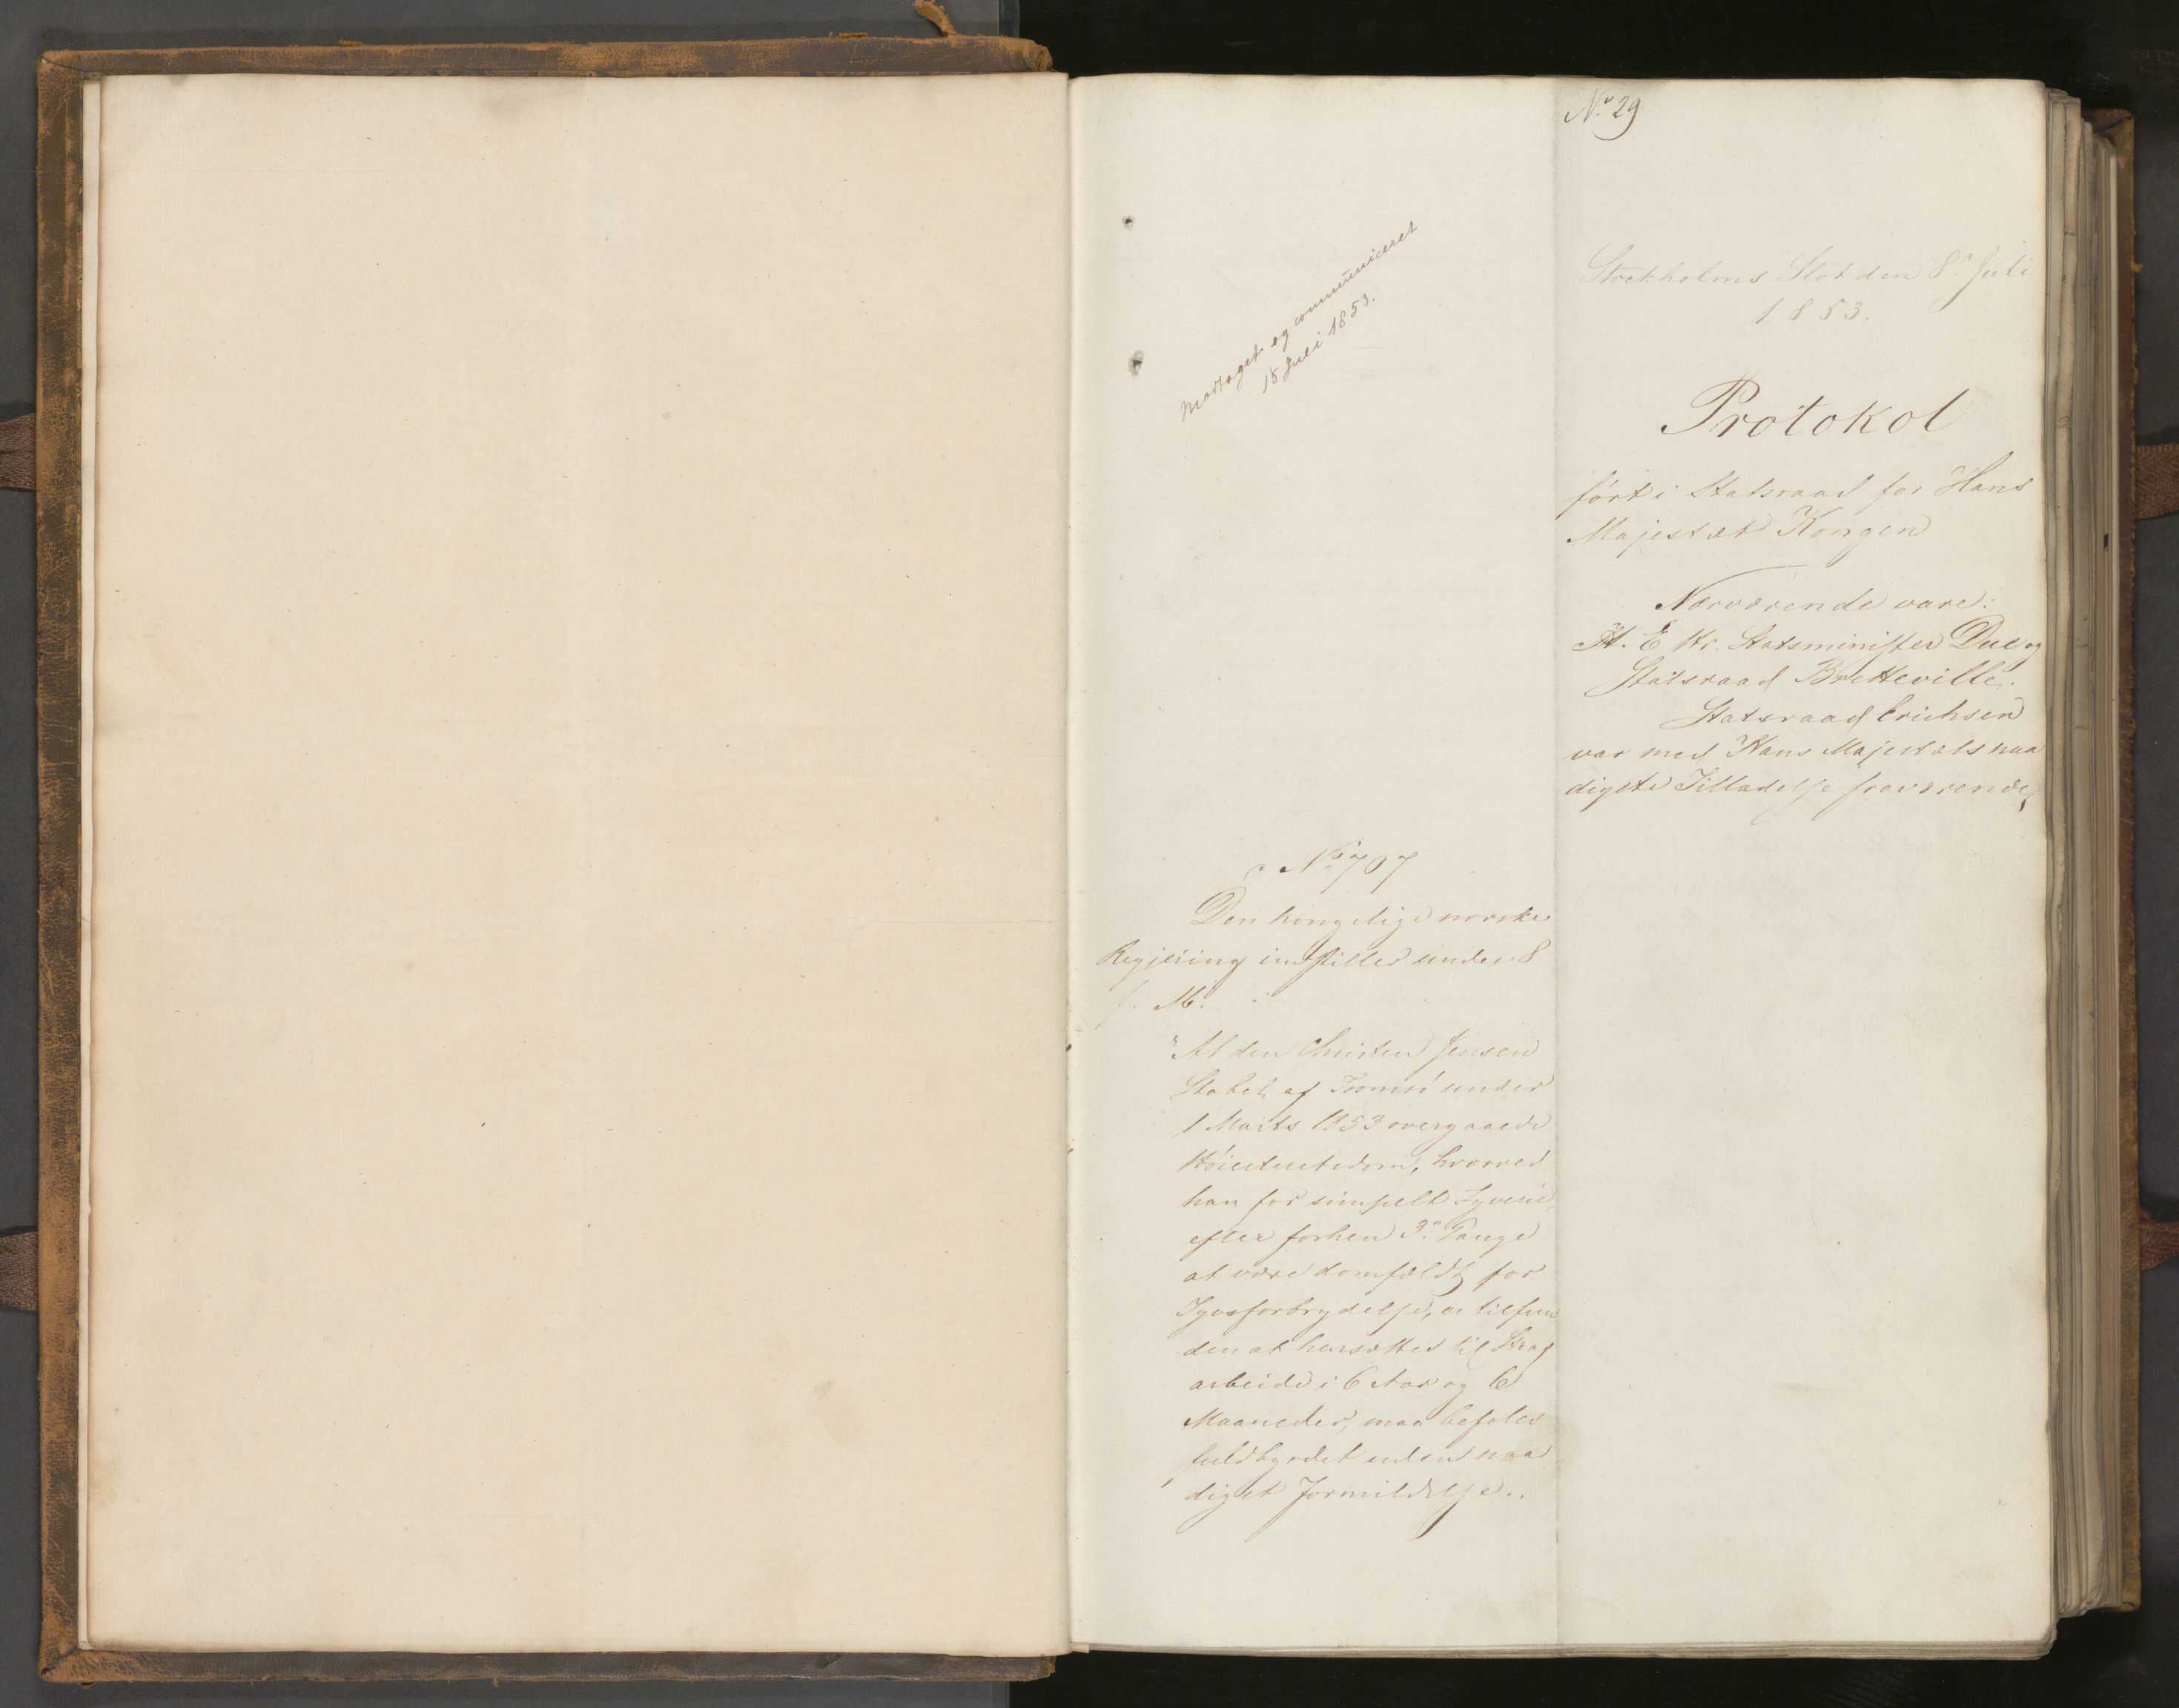 No 29
Stockholms Slot den 8de Juli
1853.
Protokol
ført i Statsraad for Hans
Majestæt Kongen
Nærværende vare:
H. E. Hr. Statsminister Due og
Statsraad Bretteville.
Statsraad Erichsen
var med Hans Majestæts naa
digste Tilladelse fraværende,
Modtaget og communiceret
15 Juli 1853.
No 707
Den kongelige norske
Regjering indstiller under 8
f. M.:
"At den Christen Jensen
af Tromsö under
1 Marts 1853 overgaaede
Höiesteretsdom, hvorved
han for simpelt Tyverie,
efter forhen 3de Gange
at være domfældt for
Tyvsforbrydelse, er tilfun
den at hensættes til Straf
arbeide i 6 Aar og 6
Maaneder, maa befales
fuldbyrdet uden naa
digst Formildelse."